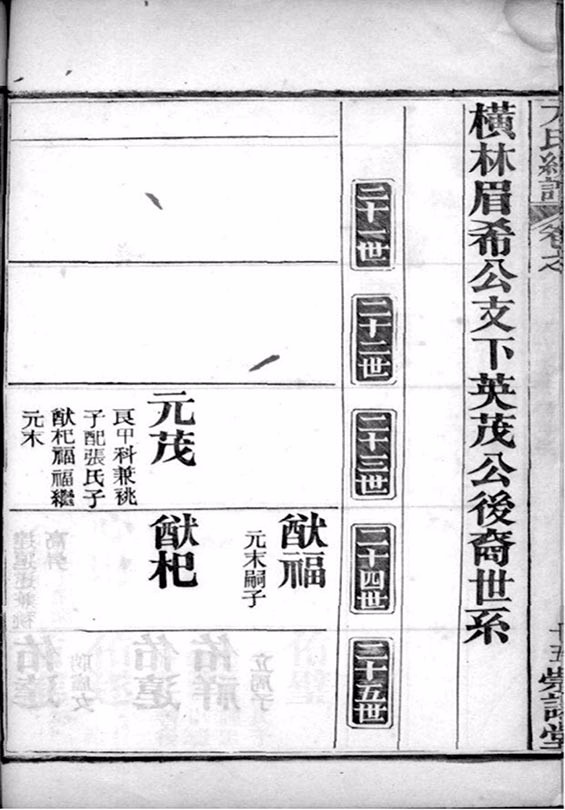 橫林眉希公支下英茂公後裔世系
二十一世
二十二世
二十三世
二十四世
二十五世
元茂
良甲科兼祧
子配張氏子
猷杞福福繼
元末
猷福
元末嗣子
猷杞